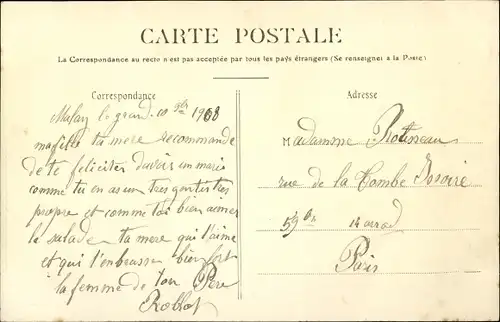 CARTE POSTALE
La Correspondance au recto n'est pas acceptée par tous les pays étrangers (Se renseigner à la Poste)
Correspondance
Malay le grand 10 1908
ma fille ta mere recommande
de te feliciter davoir un maris
comme tu en as un tres gentis tres
propre et comme toi bien aimer
la salade ta mere qui l'aime
et qui l'enbrasse bien fort
la femme de ton Pere
Roblot
Adresse
Madamme Rotineau
rue de la Tombe Issoire
59 bis 14 arrod
Paris